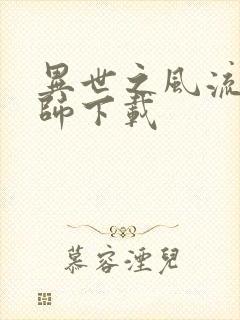 異世之風流
師下載
慕容湮兒